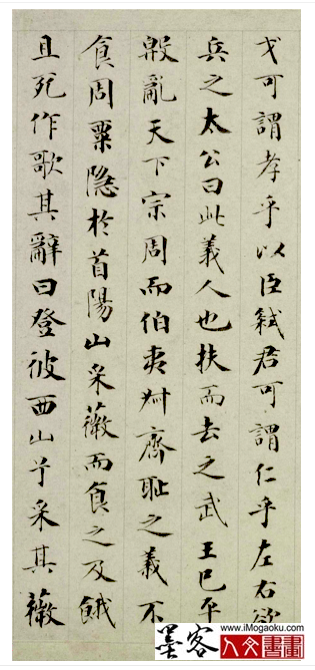 戈可謂孝乎以臣弑君可謂仁乎左右欲
兵之太公曰此義人也扶而去之武王已平
殷亂天下宗周而伯夷叔齊恥之義不
食周粟隐於首陽山采薇而食之及餓
且死作歌其辭曰登彼西山兮采其薇
墨客
www.iMogaoku.com
人文書畫